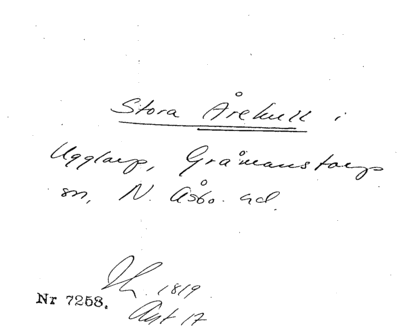 Stora Årekull i
Ugglarp, Gråmanstorps
sn, N. Åsbo hd.
1819
Nr 7258.
Akt 17